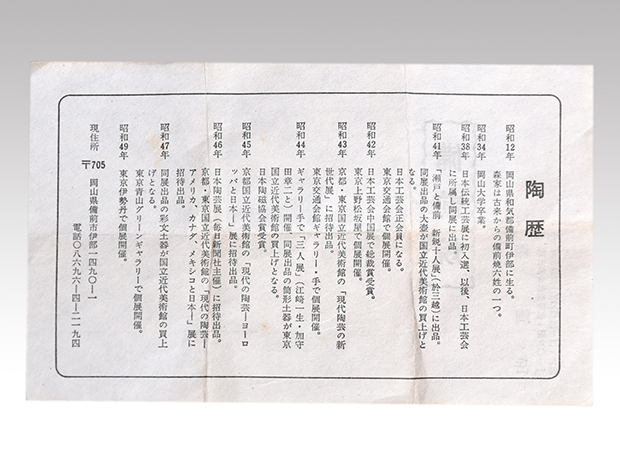 陶歴
昭和12年 岡山県和気郡備前町伊部に生る。
森家は古来からの備前焼六姓の一つ。
昭和34年 岡山大学卒業。
昭和38年 日本伝統工芸展に初入選。以後、日本工芸会
に所属し同展に出品。
昭和41年 「瀬戸と備前 新鋭十人展」(於三越)に出品。
同展出品の大壺が国立近代美術館の買上げと
なる。
日本工芸会正会員になる。
東京交通会館で個展開催。
昭和42年 日本工芸会中国展で総裁賞受賞。
東京上野松坂屋で個展開催。
昭和43年 京都・東京国立近代美術館の「現代陶芸の新
世代展」に招待出品。
東京交通会館ギャラリー・手で個展開催。
昭和44年 ギャラリー手で「三人展」(江崎一生・加守
田章二と)開催、同展出品の筒形土器が東京
国立近代美術館の買上げとなる。
日本陶磁協会賞受賞。
昭和45年 京都国立近代美術館の「現代の陶芸―ヨーロ
ッパと日本―」展に招待出品。
昭和46年 日本陶芸展(毎日新聞社主催)に招待出品。
昭和47年 京都・東京国立近代美術館の「現代の陶芸―
アメリカ、カナダ、メキシコと日本―」展に
招待出品。
同展出品の彩文土器が国立近代美術館の買上
げとなる。
東京青山グリーンギャラリーで個展開催。
昭和49年 東京伊勢丹で個展開催。
現住所 〒705 岡山県備前市伊部一四九〇―一
電話〇八六九六―四―二一九四